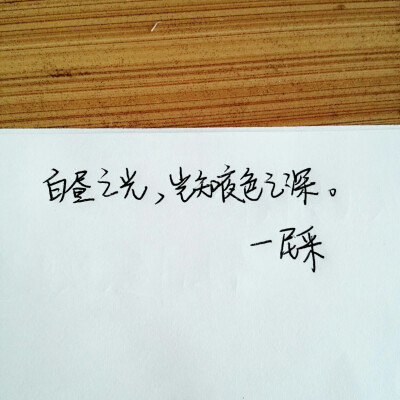 白昼之光，岂知夜色之深。
一尼采